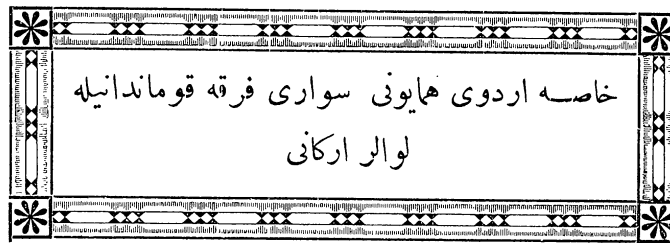 خاصه اردوی همایونی سواری فرقه قوماندانیله
لوالر ارکانی